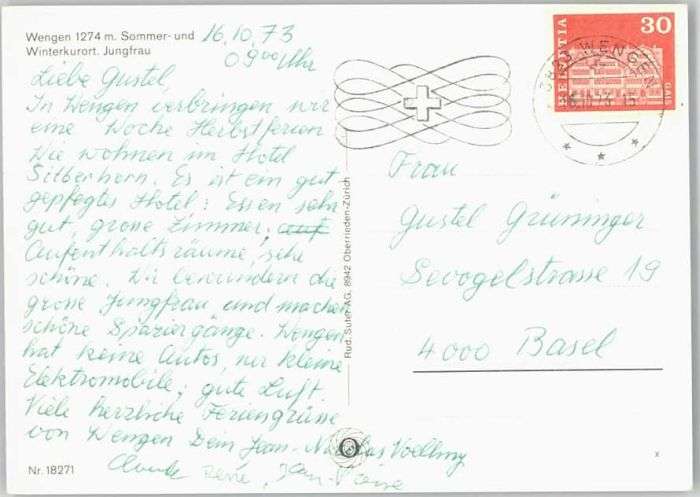 Wengen 1274 m. Sommer- und
Winterkurort. Jungfrau
16.10.73
09⁰⁰ Uhr
Liebe Gustel,
In Wengen verbringen wir
eine Woche Herbstferien
Wir wohnen im Hotel
Silberhorn. Es ist ein gut
gepflegtes Hotel: Essen sehr
gut grosse Zimmer, auf
Aufenthaltsräume, sehr
schöne. Wir bewundern die
grosse Jungfrau und machen
schöne Spaziergänge. Wengen
hat keine Autos, nur kleine
Elektromobile; gute Luft.
Viele herzliche Feriengrüsse
von Wengen Dein Jean-Nicolas Voellmy
Nr. 18271
Rud. Suter AG, 8942 Oberrieden-Zürich
HELVETIA
30
3823 WENGEN
Frau
Gustel Grüninger
Sevogelstrasse 19
4000 Basel
x